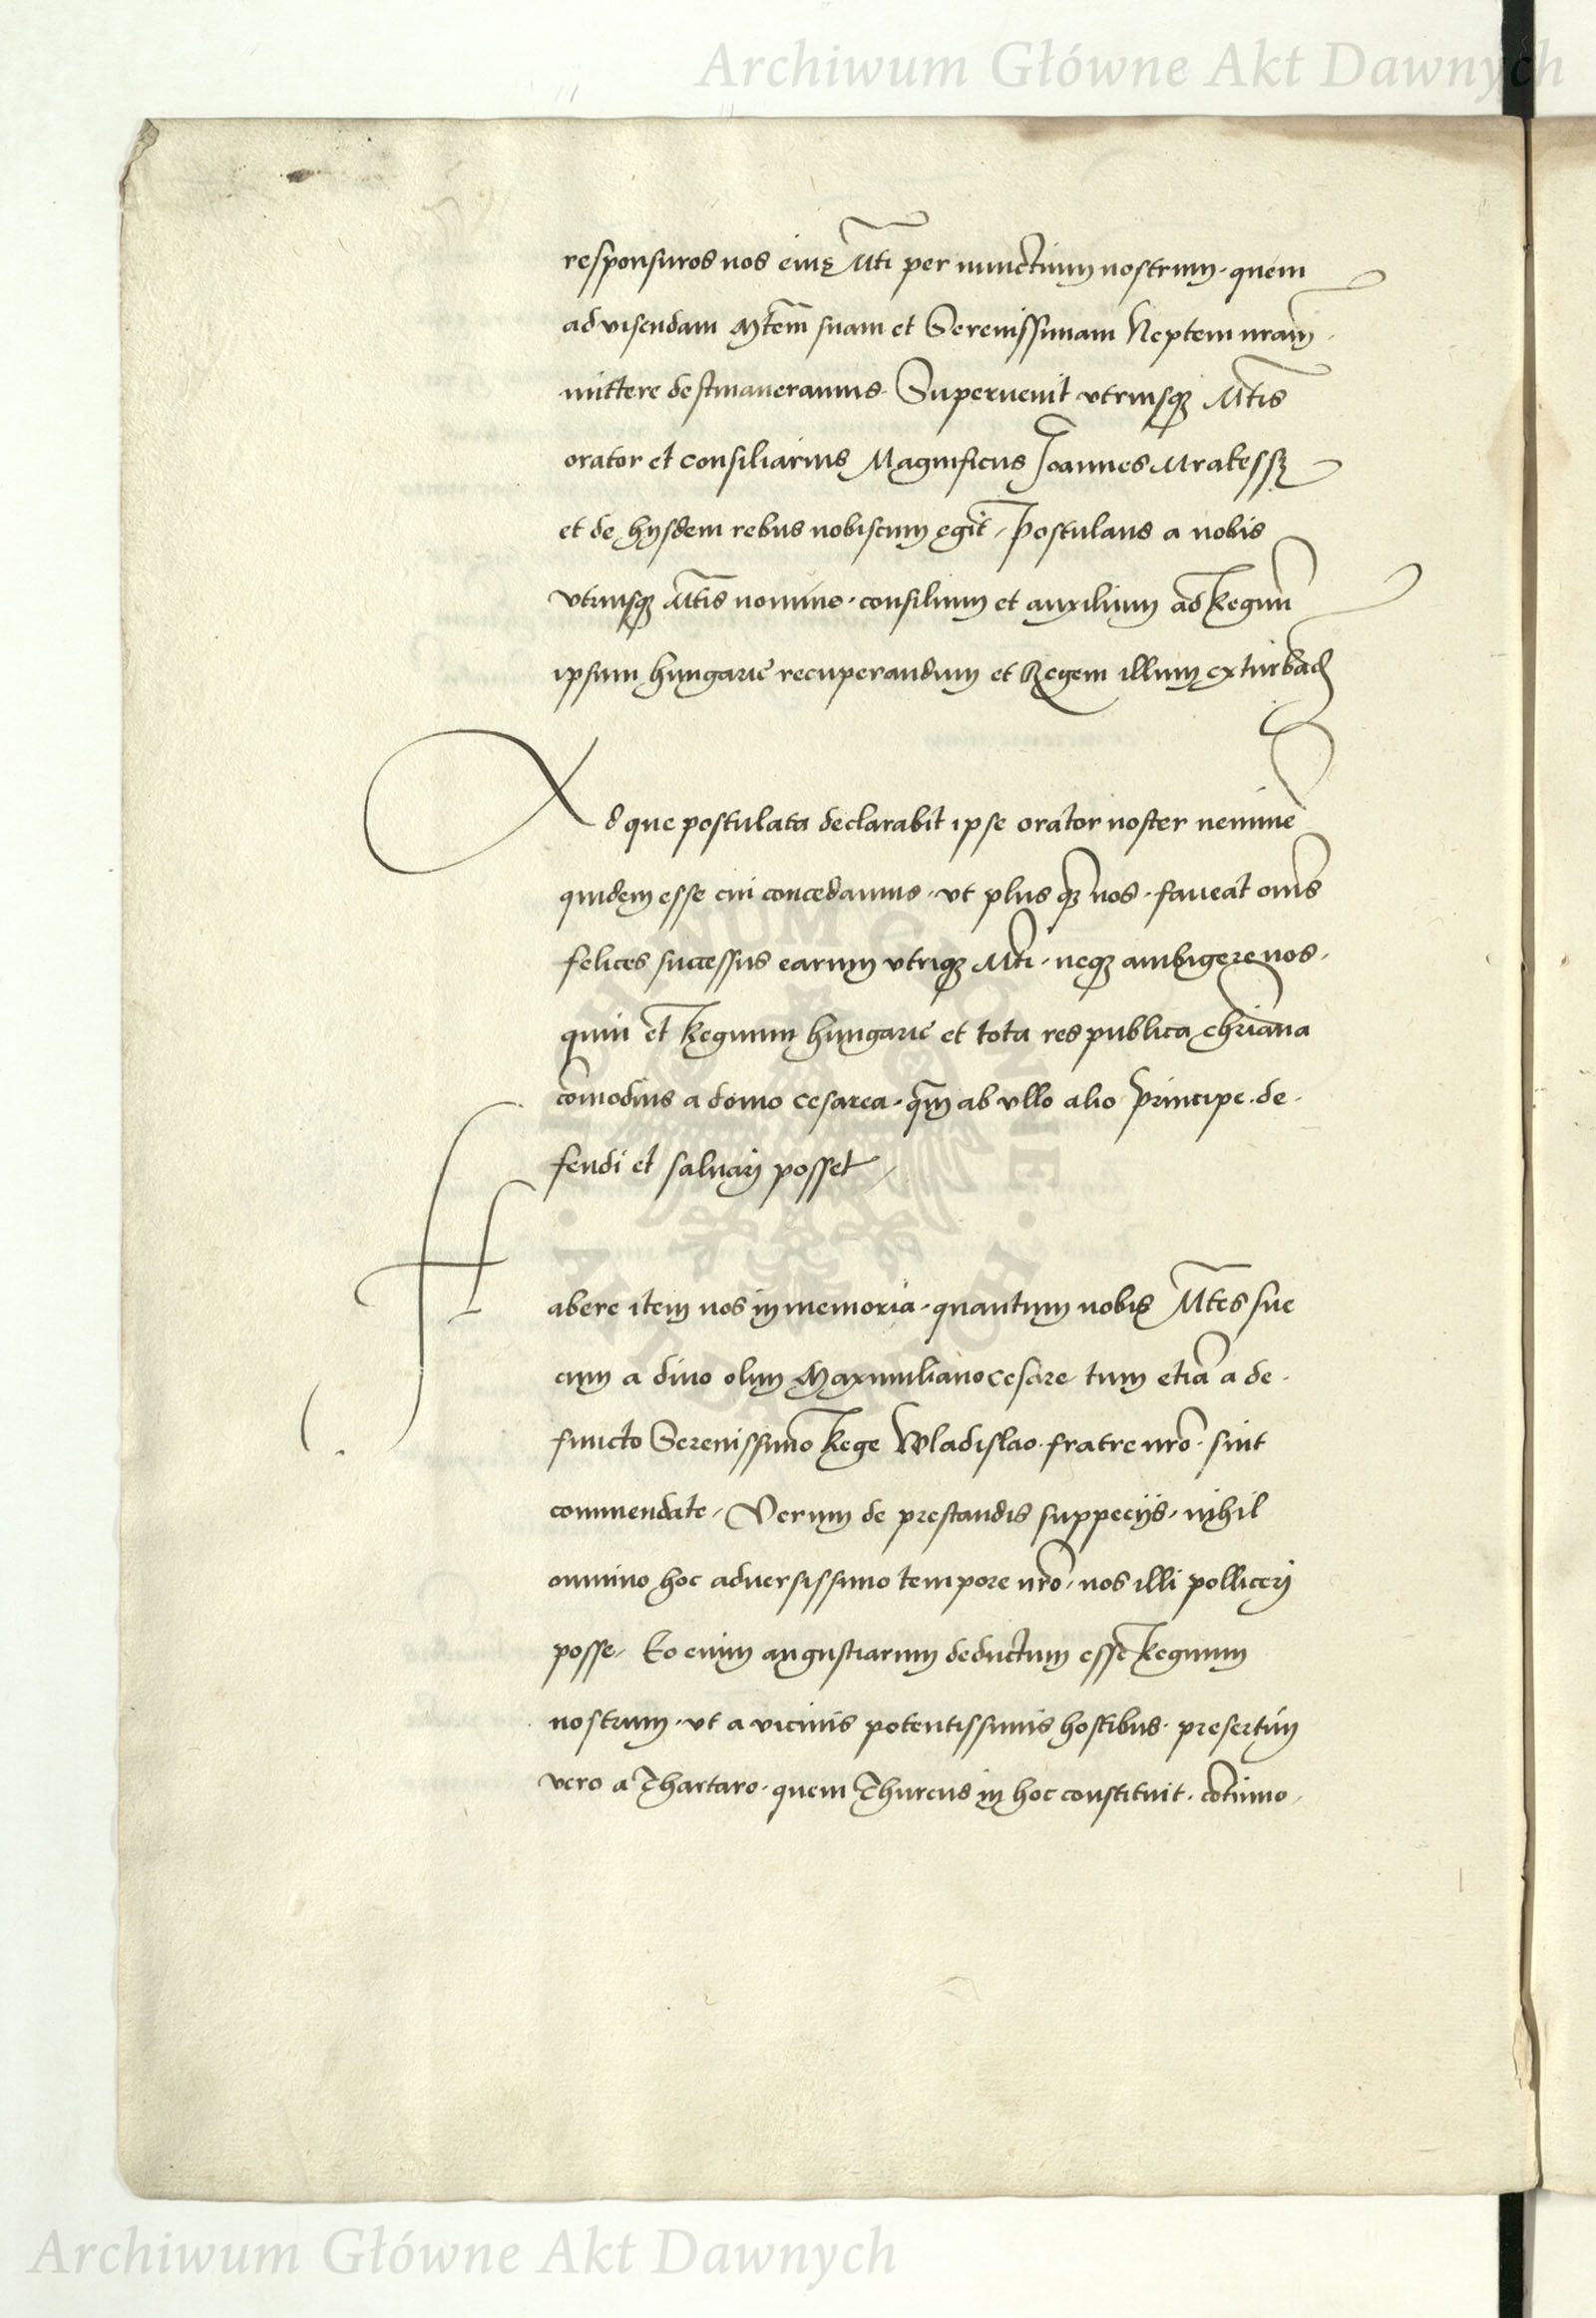 Archiwum Główne Akt Dawnych
responsuros nos eius Mti per nunctium nostrum · quem
ad visendam Mtem suam et Serenissimam Neptem nram ·
mittere destinaueramus · Superuenit vtriusq Mtis
orator et consiliarius Magnificus Joannes Mrakessz
et de hijsdem rebus nobiscum egit / Postulans a nobis
vtriusq Mtis nomine · consilium et auxilium ad Regnum
ipsum Hungarie recuperandum et Regem illum exturband
Ad que postulata declarabit ipse orator noster neminem
quidem esse cui concedamus · vt plus q nos · faueat oms
felices successus earum vtriq Mti · neq ambigere nos ·
quin et Regnum Hungarie et tota res publica chriana
comodius a domo cesarea · qm ab vllo alio Principe · de ·
fendi et saluari posset /
Habere item nos in memoria · quantum nobis Mtes sue
cum a diuo olim Maximiliano cesare tum etia a de ·
functo Serenissimo Rege Wladislao · fratre nro · sint
commendate / Verum de prestandis suppecijs · nihil
omnino hoc aduersissimo tempore nro · nos illi polliceri
posse / Eo enim angustiarum deductum esse Regnum
nostrum · vt a vicinis potentissimis hostibus · presertim
vero a Thartaro · quem Thurcus in hoc constituit · cotinuo /
ARCHIWUM GŁÓWNE · AKT DAWNYCH ·
Archiwum Główne Akt Dawnych